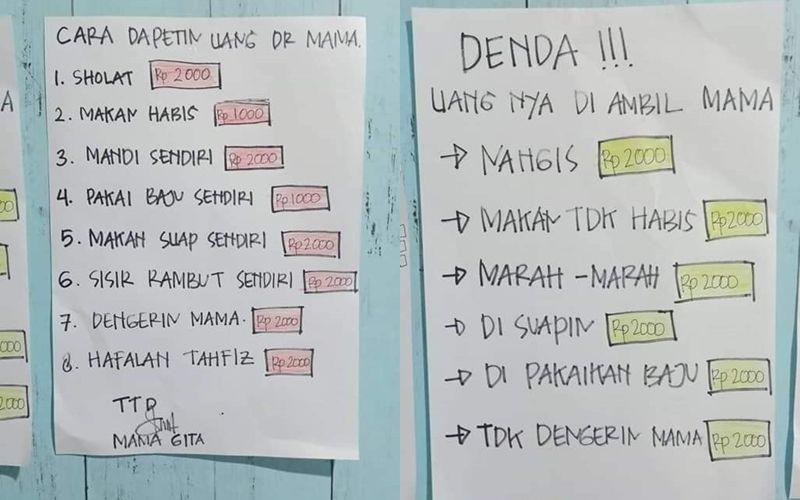 CARA DAPETIN UANG DR MAMA.
1. SHOLAT Rp 2000
2. MAKAN HABIS Rp 1000
3. MANDI SENDIRI Rp 2000
4. PAKAI BAJU SENDIRI Rp 1000
5. MAKAN SUAP SENDIRI Rp 2000
6. SISIR RAMBUT SENDIRI Rp 2000
7. DENGERIN MAMA. Rp 2000
8. HAFALAN TAHFIZ Rp 2000
TTD
MAMA GITA
DENDA !!!
UANG NYA DI AMBIL MAMA
→ NANGIS Rp 2000
→ MAKAN TDK HABIS Rp 2000
→ MARAH - MARAH Rp 2000
→ DI SUAPIN Rp 2000
→ DI PAKAIKAN BAJU Rp 2000
→ TDK DENGERIN MAMA Rp 2000